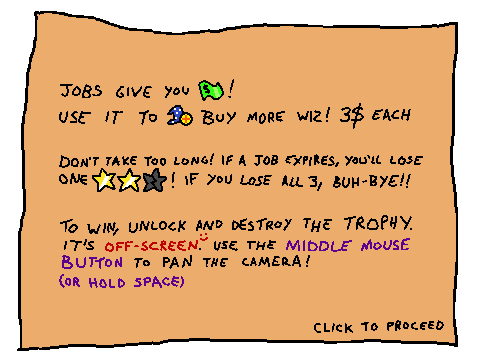 JOBS GIVE YOU $!
USE IT TO BUY MORE WIZ! 3$ EACH
DON'T TAKE TOO LONG! IF A JOB EXPIRES, YOU'LL LOSE
ONE ! IF YOU LOSE ALL 3, BUH-BYE!!
TO WIN, UNLOCK AND DESTROY THE TROPHY.
IT'S OFF-SCREEN. USE THE MIDDLE MOUSE
BUTTON TO PAN THE CAMERA!
(OR HOLD SPACE)
CLICK TO PROCEED